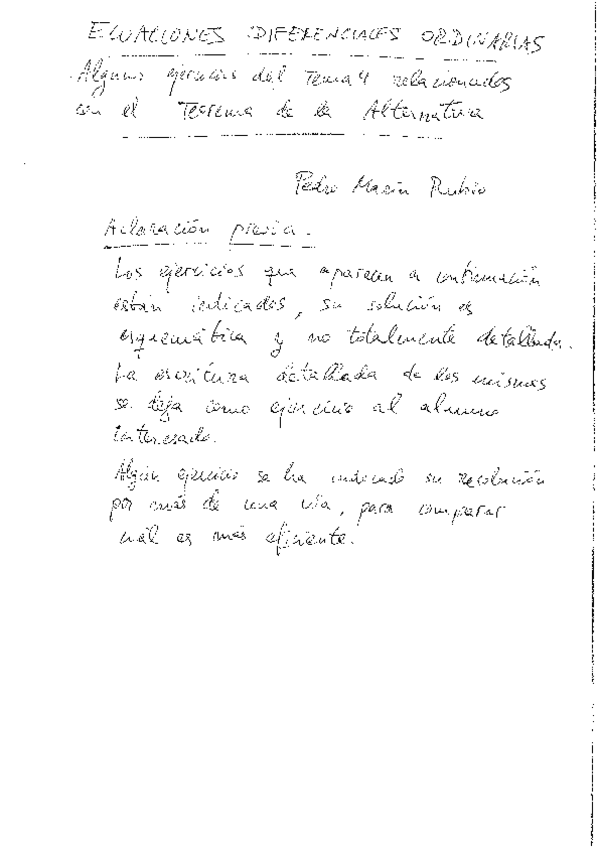 ECUACIONES DIFERENCIALES ORDINARIAS
Algunos ejercicios del Tema 4 relacionados
con el Teorema de la Alternativa
Pedro Marín Rubio
Aclaración previa.
Los ejercicios que aparecen a continuación
están indicados, su solución es
esquemática y no totalmente detallada.
La escritura detallada de los mismos
se deja como ejercicio al alumno
interesado.
Algún ejercicio se ha indicado su resolución
por más de una vía, para comparar
cuál es más eficiente.